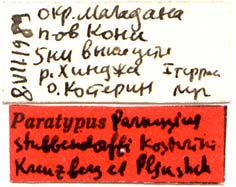 окр. Магадана
п-ов Кони
5 км выше устья
р. Хинджа
О. Костерин
8 VII 198
Paratypus Parnassius
stubbendorffi kosterini
Kreuzberg et Pljushch